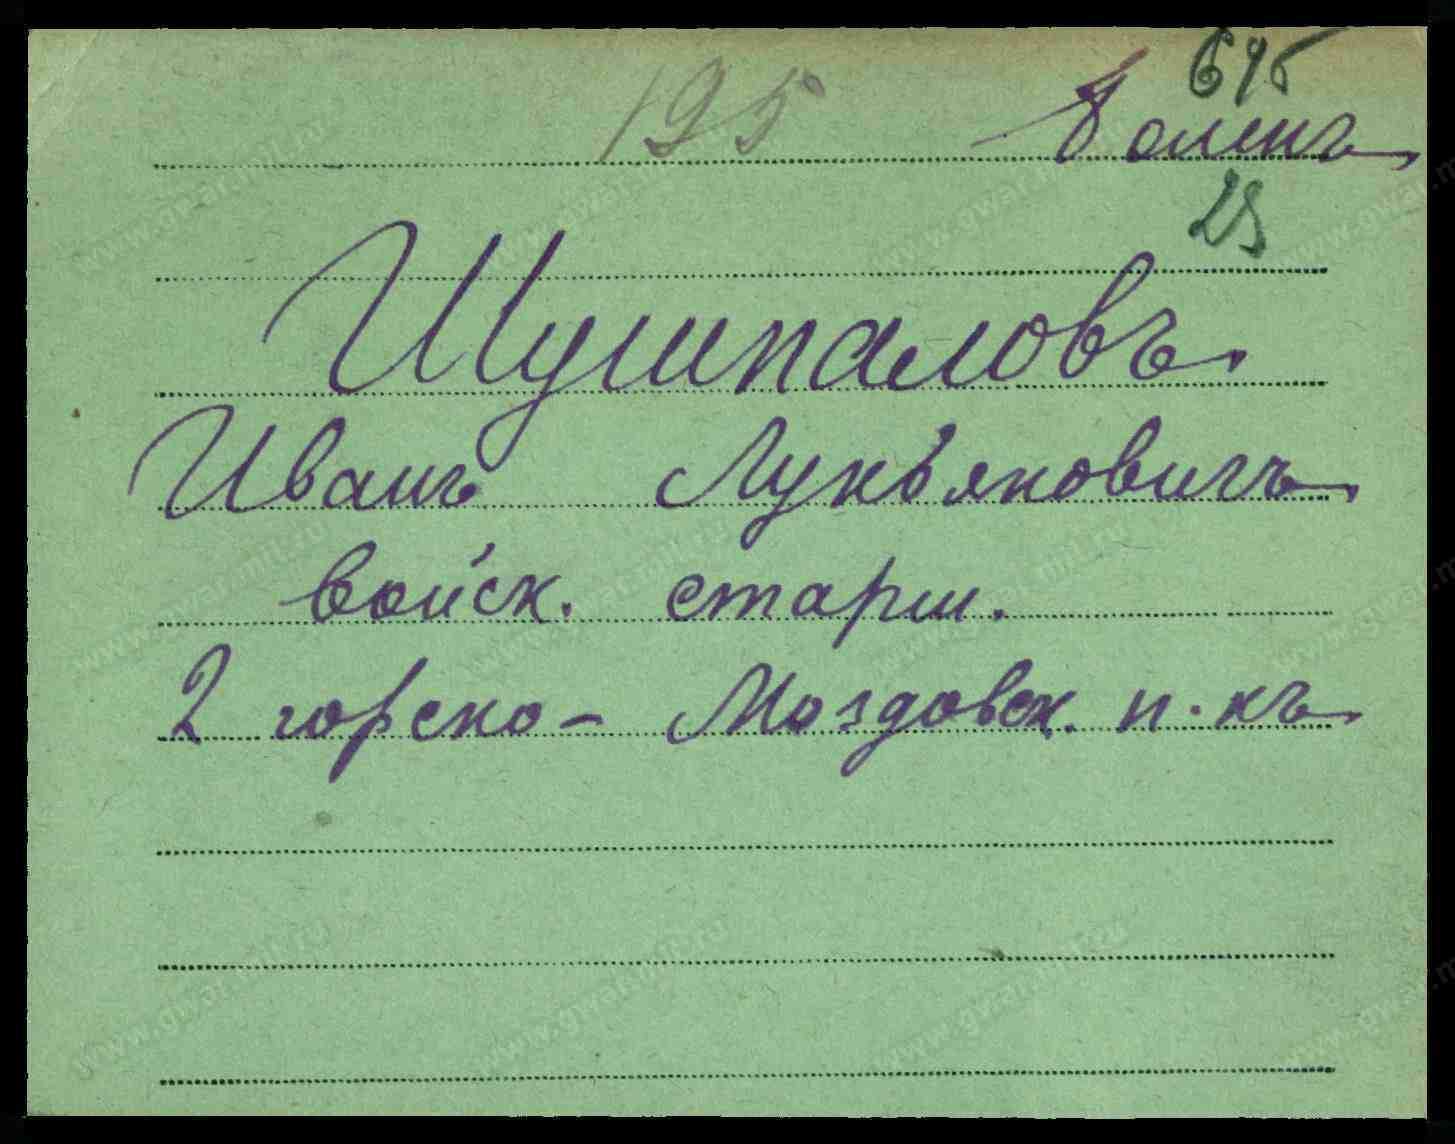 695
195 боленъ
29
Шушпаловъ
Иванъ Лукьяновичъ
войск. старш.
2 горско- Моздовск. п. къ
www.gwar.mil.ru